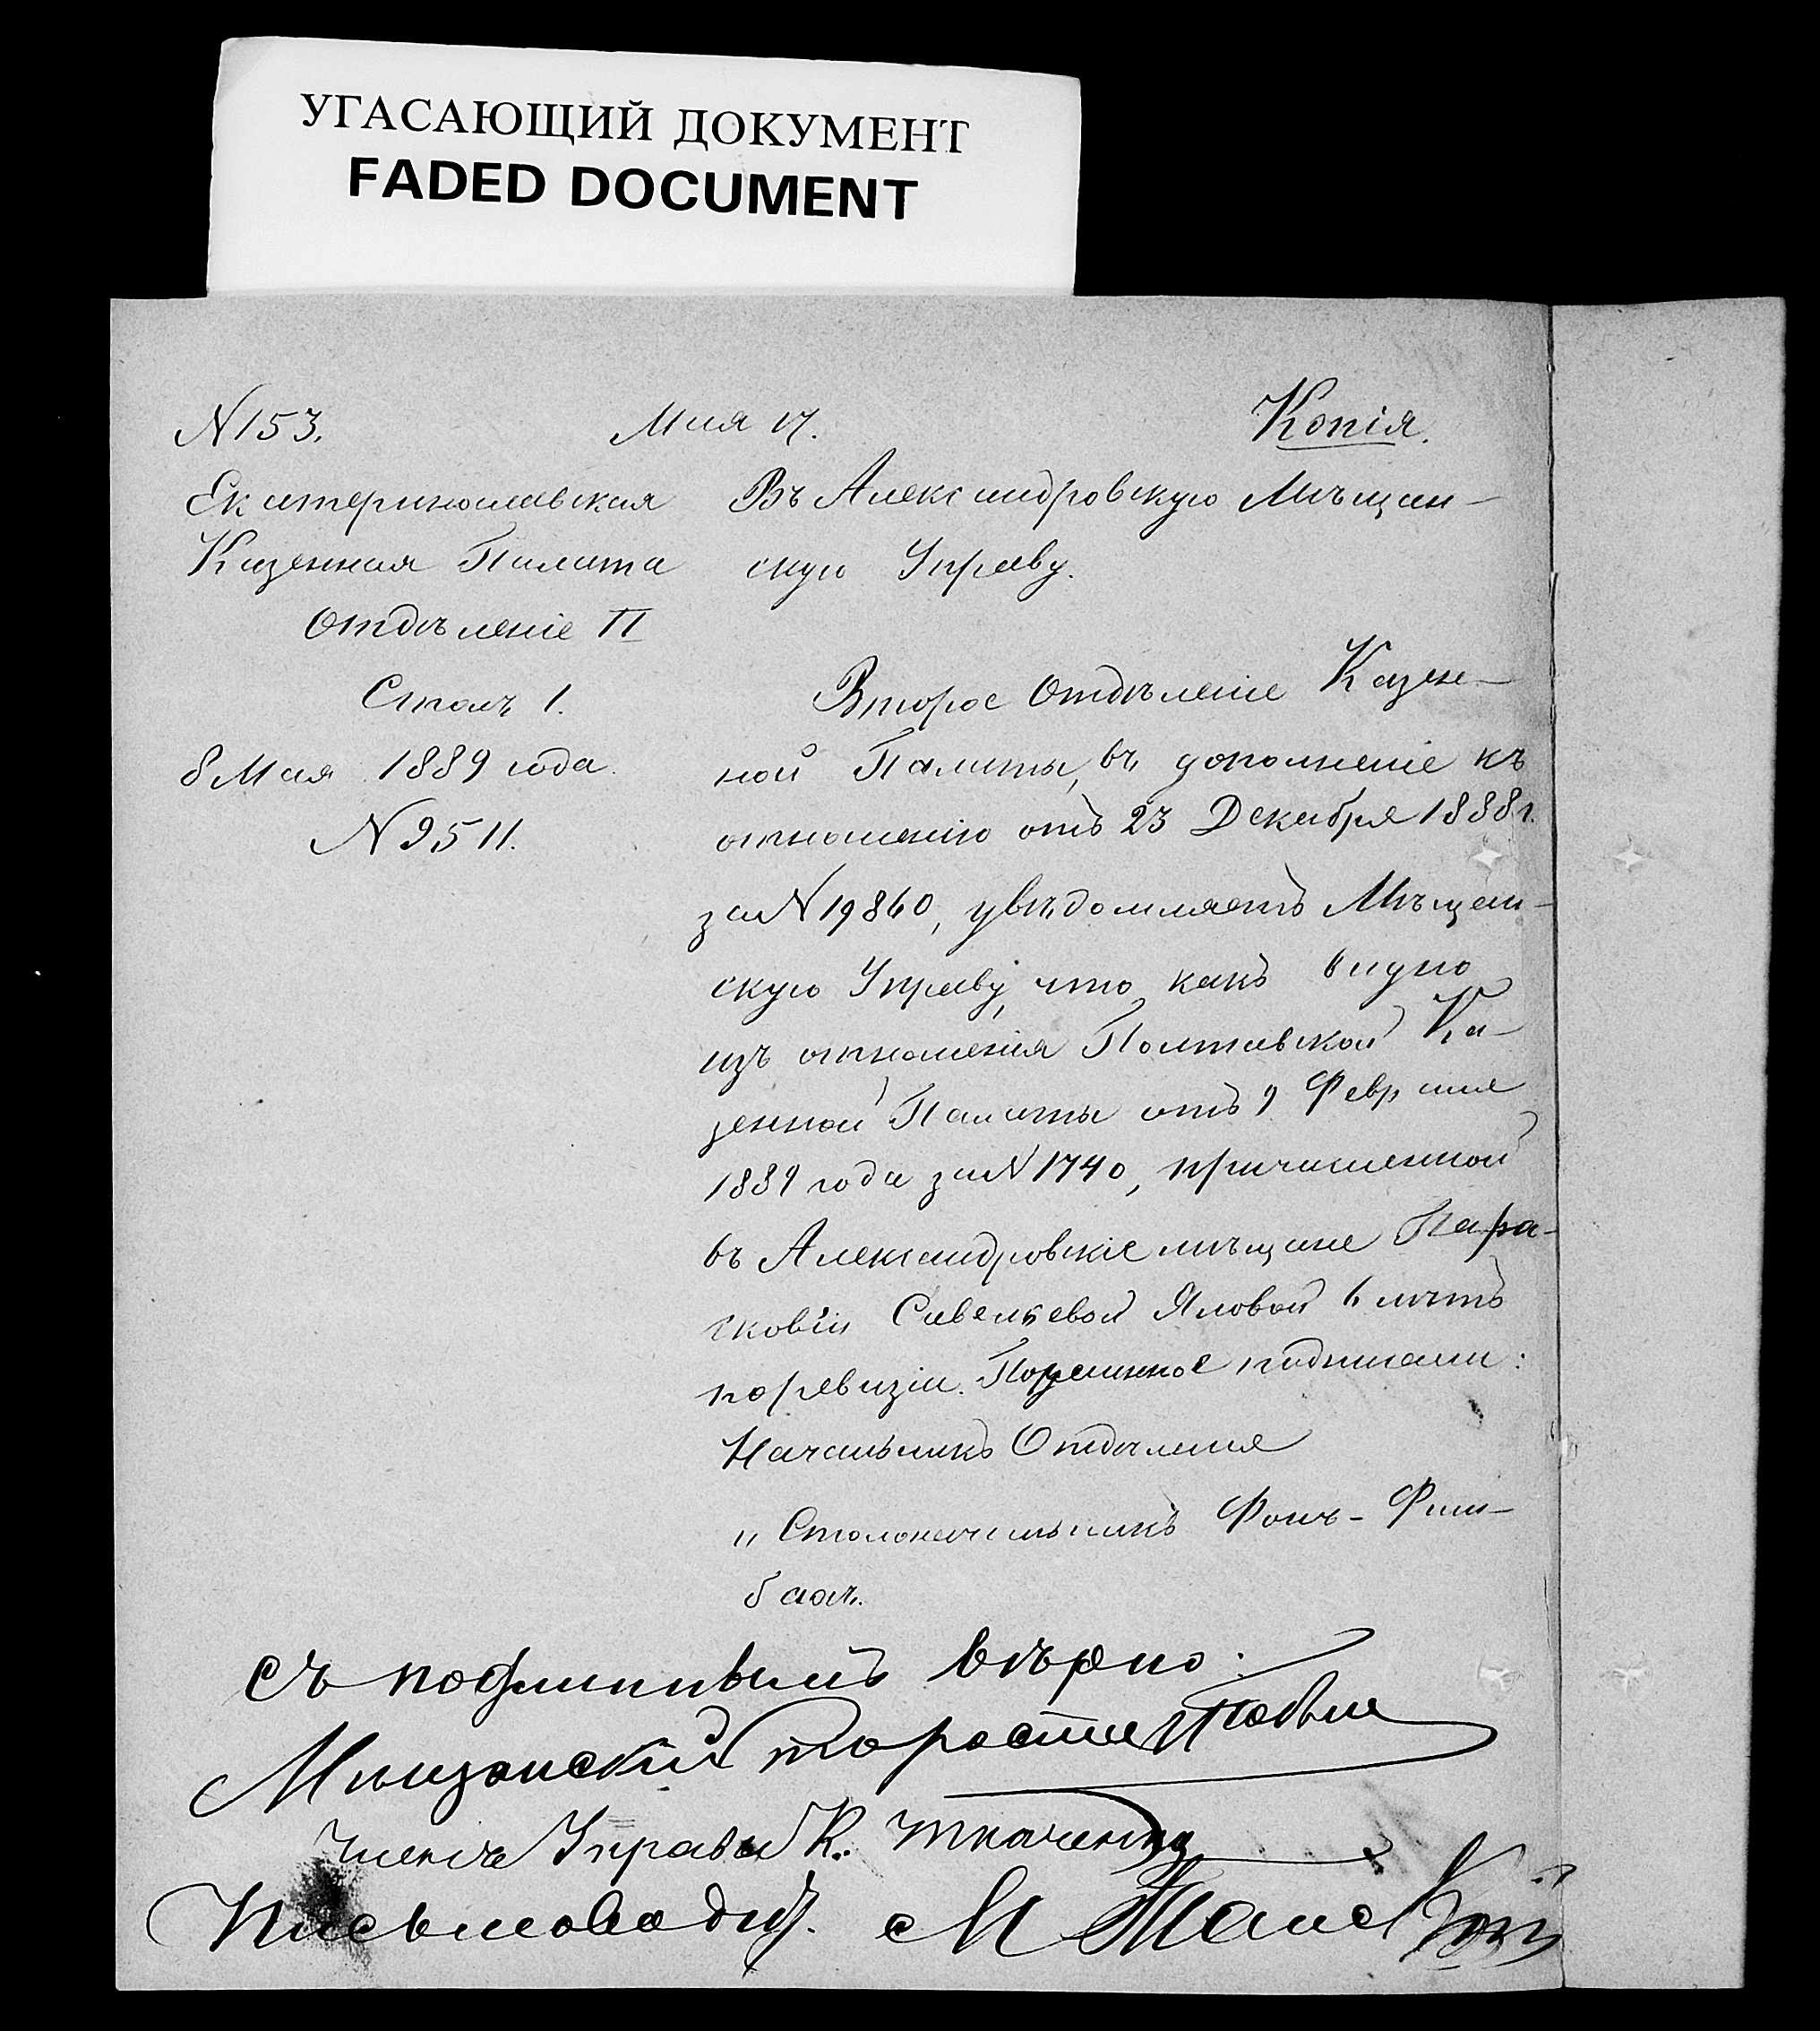 УГАСАЮЩИЙ ДОКУМЕНТ
FADED DOCUMENT
N 153.
Мая 17.
Копія.
Екатеринославская
Казенная Палата
Отдѣленіе II
Столъ 1.
8 Мая 1889 года.
N 9511.
Въ Александровскую Мѣщан-
скую Управу.
Второе Отдѣленіе Казен-
ной Палаты, въ дополненіе къ
отношенію отъ 23 Декабря 1888 г.
за N 19860, увѣдомляетъ Мѣщан-
скую Управу, что какъ видно
изъ отношенія Полтавской Ка-
зенной Палаты отъ 9 Февраля
1889 года за N 1740, причисленной
въ Александровскіе мѣщане Пара-
сковіи Савельевой Яловой 6 лѣтъ
по ревизіи. Подлинное подписали:
Начальникъ Отдѣленія
" Столоначальникъ Фонъ-
Съ подлиннымъ вѣрно:
Мѣщанскій Староста
Членъ Управы К. Ткаченко
Письмоводит. М